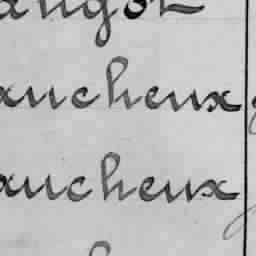 angot
aucheux
aucheux